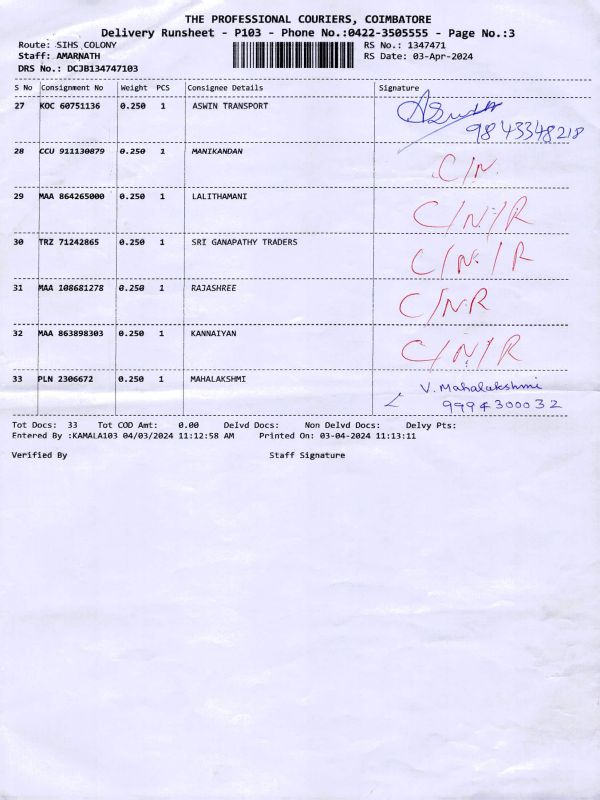 THE PROFESSIONAL COURIERS, COIMBATORE
Delivery Runsheet - P103 - Phone No.:0422-3505555 - Page No.:3
Route: SIHS COLONY RS No.: 1347471
Staff: AMARNATH RS Date: 03-Apr-2024
DRS No.: DCJB134747103
S No Consignment No Weight PCS Consignee Details Signature
27 KOC 60751136 0.250 1 ASWIN TRANSPORT
9843348218
28 CCU 911130879 0.250 1 MANIKANDAN C/N.
29 MAA 864265000 0.250 1 LALITHAMANI C/N/R
30 TRZ 71242865 0.250 1 SRI GANAPATHY TRADERS C/N/R
31 MAA 108681278 0.250 1 RAJASHREE C/NR
32 MAA 863898303 0.250 1 KANNAIYAN C/N/R
33 PLN 2306672 0.250 1 MAHALAKSHMI V. Mahalakshmi
9994300032
Tot Docs: 33 Tot COD Amt: 0.00 Delvd Docs: Non Delvd Docs: Delvy Pts:
Entered By :KAMALA103 04/03/2024 11:12:58 AM Printed On: 03-04-2024 11:13:11
Verified By Staff Signature